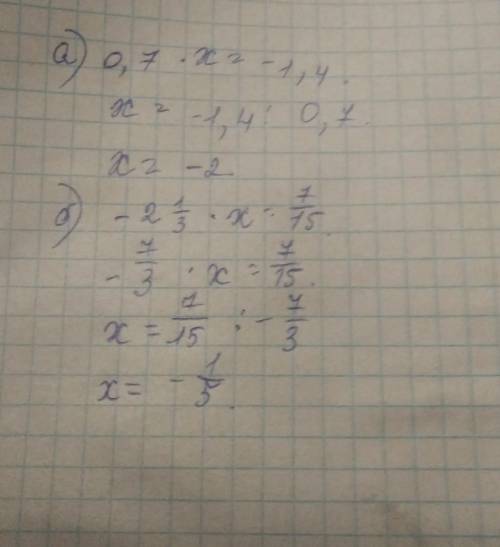 а) 0,7 · x = -1,4.
x = -1,4 : 0,7.
x = -2
б) -2 1/3 · x = 7/15.
-7/3 · x = 7/15.
x = 7/15 : -7/3
x = -1/5.